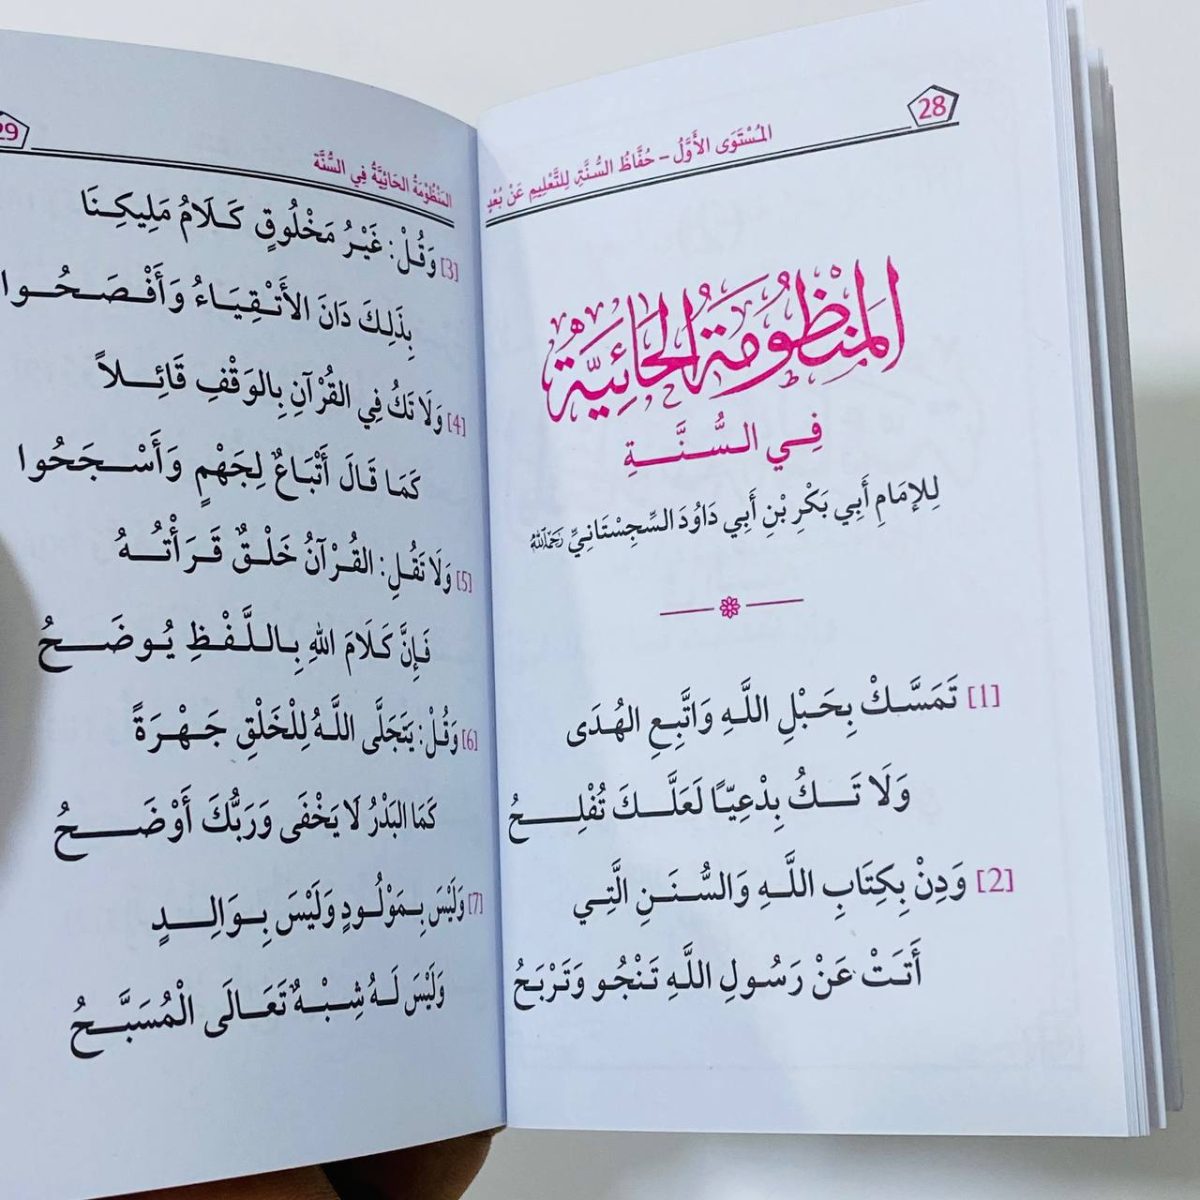 28
المُسْتَوَى الأَوَّلُ - حُفَّاظُ السُّنَّةِ لِلتَّعْلِيمِ عَنْ بُعْدٍ
المَنْظُومَةُ الحَائِيَّةُ
فِي السُّنَّةِ
لِلإِمَامِ أَبِي بَكْرِ بْنِ أَبِي دَاوُدَ السِّجِسْتَانِيِّ رَحِمَهُ اللَّهُ
[1] تَمَسَّكْ بِحَبْلِ اللَّهِ وَاتَّبِعِ الهُدَى
وَلَا تَكُ بِدْعِيًّا لَعَلَّكَ تُفْلِحُ
[2] وَدِنْ بِكِتَابِ اللَّهِ وَالسُّنَنِ الَّتِي
أَتَتْ عَنْ رَسُولِ اللَّهِ تَنْجُو وَتَرْبَحُ
29
المَنْظُومَةُ الحَائِيَّةُ فِي السُّنَّة
[3] وَقُلْ: غَيْرُ مَخْلُوقٍ كَلَامُ مَلِيكِنَا
بِذَلِكَ دَانَ الأَتْقِيَاءُ وَأَفْصَحُوا
[4] وَلَا تَكُ فِي القُرْآنِ بِالوَقْفِ قَائِلاً
كَمَا قَالَ أَتْبَاعٌ لِجَهْمٍ وَأَسْجَحُوا
[5] وَلَا تَقُلِ: القُرْآنُ خَلْقٌ قَرَأْتُهُ
فَإِنَّ كَلَامَ اللهِ بِاللَّفْظِ يُوضَحُ
[6] وَقُلْ: يَتَجَلَّى اللَّهُ لِلْخَلْقِ جَهْرَةً
كَمَا البَدْرُ لَا يَخْفَى وَرَبُّكَ أَوْضَحُ
[7] وَلَيْسَ بِمَوْلُودٍ وَلَيْسَ بِوَالِدٍ
وَلَيْسَ لَهُ شِبْهٌ تَعَالَى الْمُسَبَّحُ